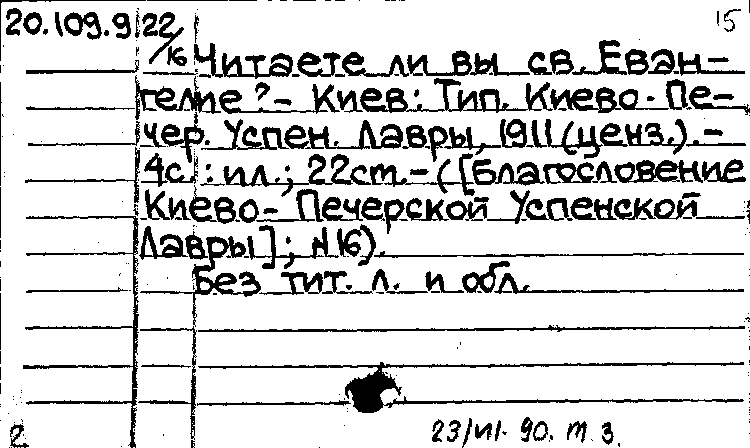 20.109.9 22/16 15
Читаете ли вы св. Еван-
гелие? - Киев: Тип. Киево-Пе-
чер. Успен. Лавры, 1911 (ценз.). -
4с.: ил.; 22см. - ([Благословение
Киево-Печерской Успенской
Лавры]; №16).
Без тит. л. и обл.
2 23/VI. 90. т. 3.